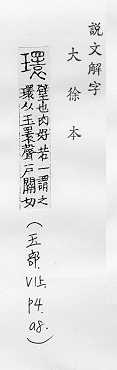 說文解字
大徐本
環
璧也肉好若一謂之
環从玉瞏聲戶關切
(玉部.V1上.P4.a8.)